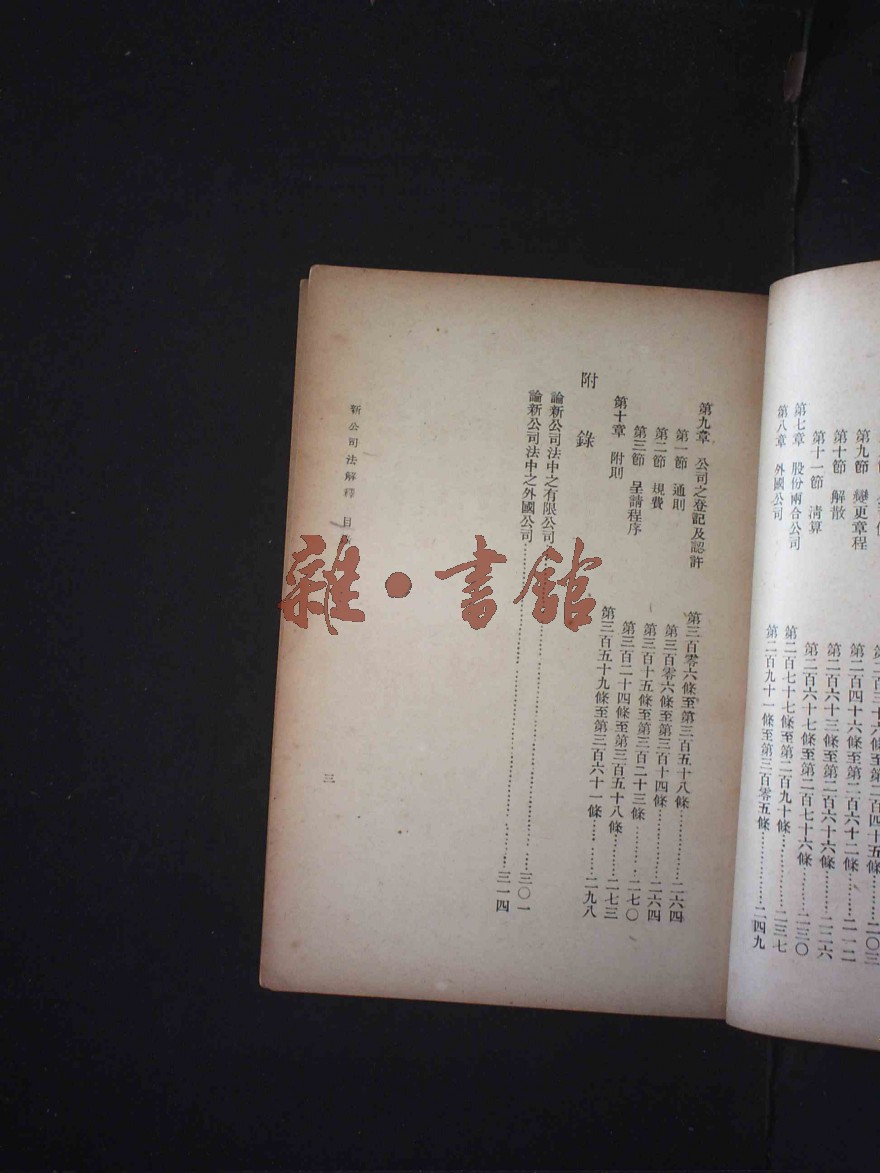 第九節 變更章程 第二百四十六條至第二百六十二條……二一二
第十節 解散 第二百六十三條至第二百六十六條……二二六
第十一節 清算 第二百六十七條至第二百七十六條……二三〇
第七章 股份兩合公司 第二百七十七條至第二百九十條……二三七
第八章 外國公司 第二百九十一條至第三百零五條……二四九
第九章 公司之登記及認許 第三百零六條至第三百五十八條……二六四
第一節 通則 第三百零六條至第三百十四條……二六四
第二節 規費 第三百十五條至第三百二十三條……二七〇
第三節 呈請程序 第三百二十四條至第三百五十八條……二七三
第十章 附則 第三百五十九條至第三百六十一條……二九八
附錄
論新公司法中之有限公司……三〇一
論新公司法中之外國公司……三一四
新公司法解釋 目
三
雜·書館